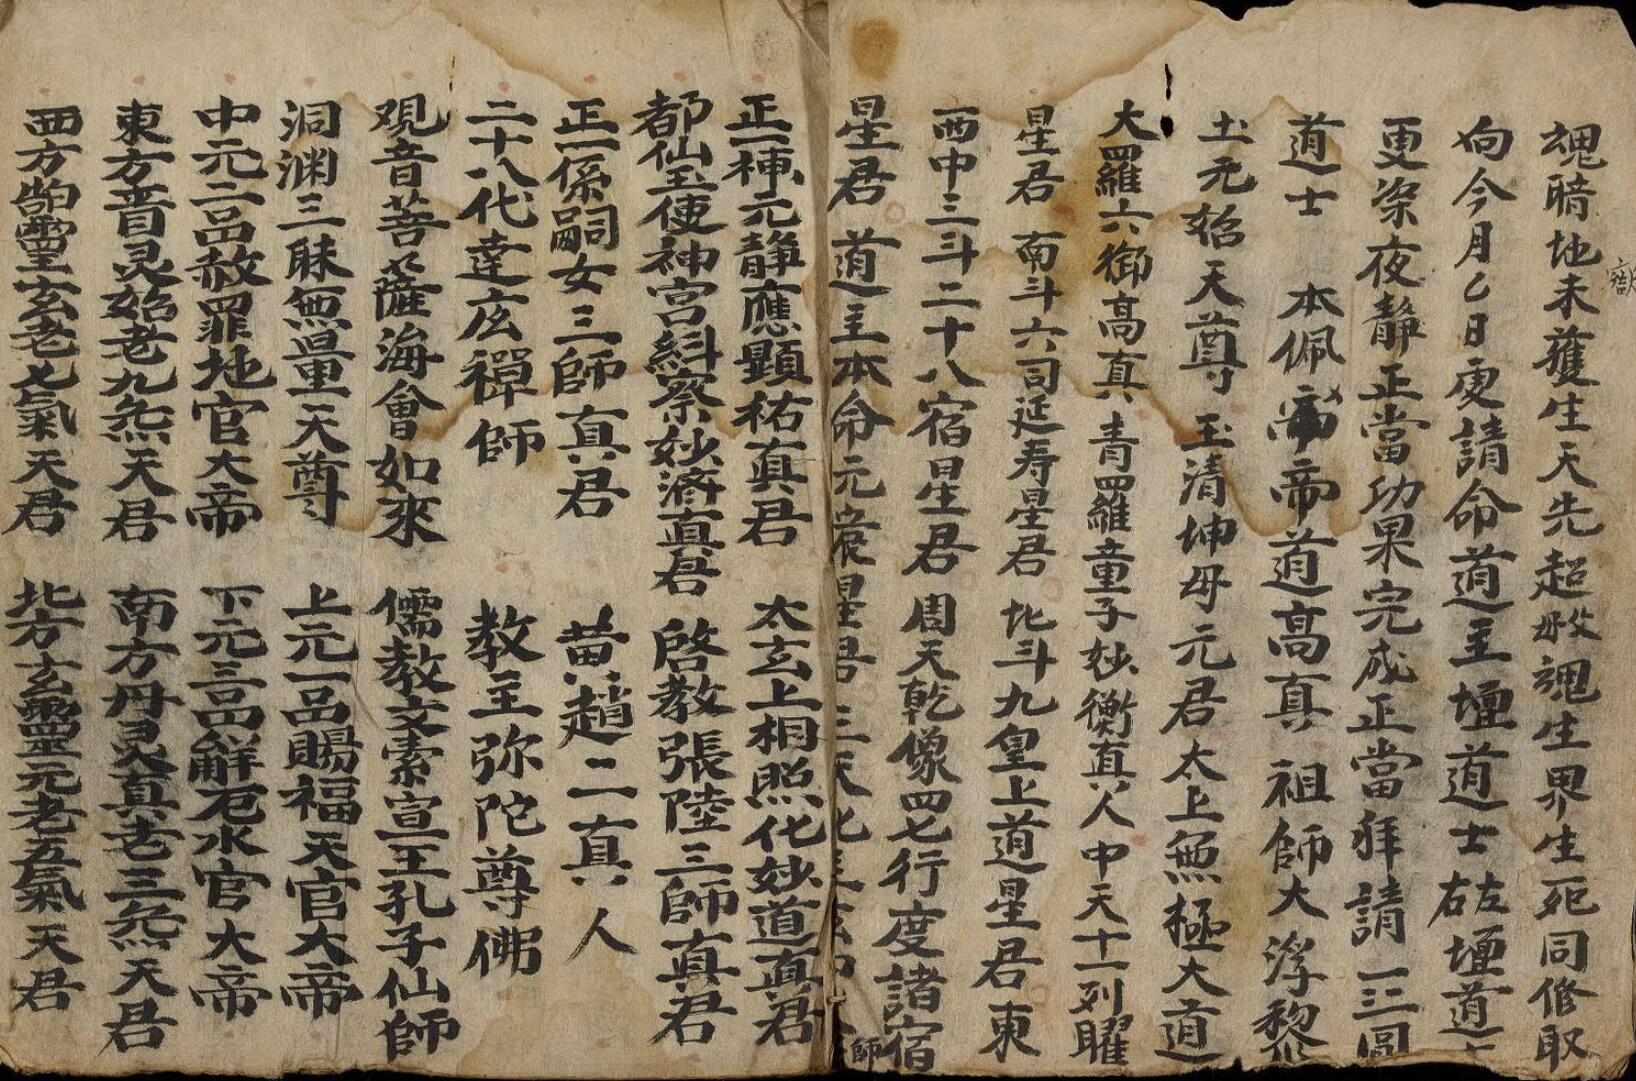 魂暗地未獲生天先超救魂生界生死同修取
向今月乙日虔請命道主壇道士右左壇道士
更深夜靜正當功果完成正當拜請三
道士 本佩帝道高真 祖師大浮黎
土元始天尊 玉清坤母元君 太上無極大道
大羅六御高真 青羅童子妙衡真人 中天十一列曜
星君 南斗六司延寿星君 北斗九皇上道星君 東
西中三斗 二十八宿星君 周天乾像四七行度諸宿
星君 道主本命元星君 三天
正一神元静應顯祐真君 太玄上相照化妙道真君
都仙玉使神宫糾察妙济真君 啓教張陸三師真君
正一係嗣女三師真君 黄趙二真人
二十八代達広禪師 教主弥陀尊佛
观音菩薩海會如來 儒教文宣王孔子仙師
洞渊三昧無量天尊 上元一品賜福天官大帝
中元二品赦罪地官大帝 下元三品解厄水官大帝
東方晋灵始老九炁天君 南方丹灵真老三炁天君
西方皓靈玄老七氣天君 北方玄靈元老五氣天君
嶽
師